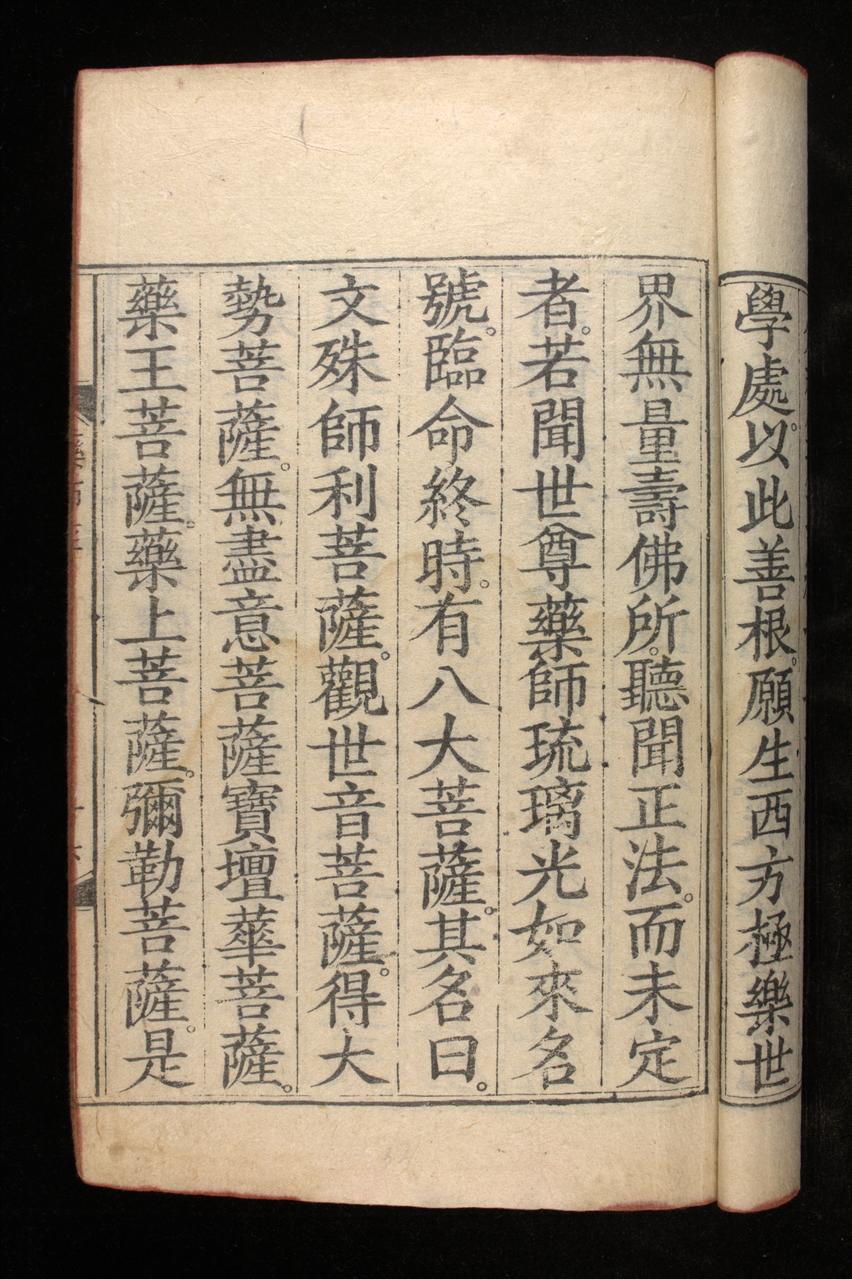 學處。以此善根。願生西方極樂世
界無量壽佛所。聽聞正法。而未定
者。若聞世尊藥師琉璃光如來名
號。臨命終時。有八大菩薩。其名曰。
文殊師利菩薩。觀世音菩薩。得大
勢菩薩。無盡意菩薩寶壇華菩薩。
藥王菩薩。藥上菩薩。彌勒菩薩。是